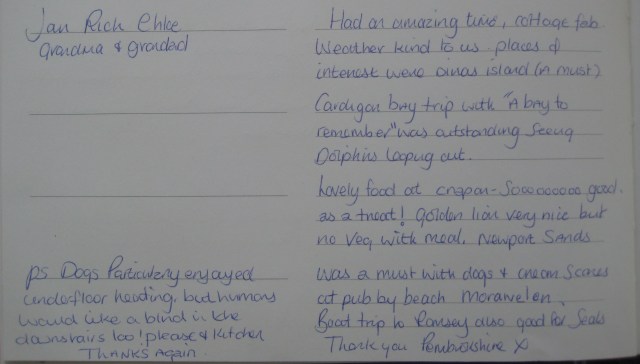 Jan Rich Ehlce
Grandma & grandad
Had an amazing time, cottage fab
Weather kind to us. places of
interest were dinas island (a must)
Cardigan bay trip with "A bay to
remember" was outstanding seeing
Dolphins leaping out.
Lovely food at cnapan - Soooooooo good.
as a treat! Golden lion very nice but
no veg with meal. Newport Sands
was a must with dogs & cream scones
at pub by beach morawelen.
Boat trip to Ramsey also good for Seals
Thank you Pembrokshire X
PS Dogs Particularly enjoyed
underfloor heating, but humans
would like a blind in the
downstairs loo! please & kitchen
THANKS AGAIN.